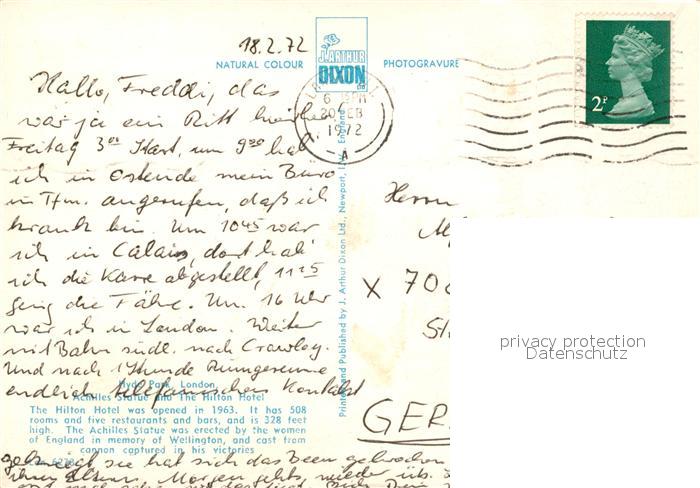 18.2.72
J. ARTHUR
DIXON
NATURAL COLOUR
PHOTOGRAVURE
2P
6 PM
20 FEB
1972
A
Hallo, Freddi, das
war ja ein Ritt
Freitag 3⁰⁰ Start, um 9³⁰ hab
ich in Ostende mein Büro
in Ffm. angerufen, daß ich
krank bin. Um 10⁴⁵ war
ich in Calais, dort hab
ich die Karre abgestellt, 11²⁵
ging die Fähre. Um 16 Uhr
war ich in London. Weiter
mit Bahn südl. nach Crawley.
Und nach 1 Stunde
endlich telefonischen Kontakt
Hyde Park, London
Achilles Statue and The Hilton Hotel
The Hilton Hotel was opened in 1963. It has 508
rooms and five restaurants and bars, and is 328 feet
high. The Achilles Statue was erected by the women
of England in memory of Wellington, and cast from
cannon captured in his victories
sie hat sich das Been gebrochen
Morgen wieder
Printed and Published by J. Arthur Dixon Ltd., Newport, I.W., England
Herrn
M
X 70
St
GER
privacy protection
Datenschutz